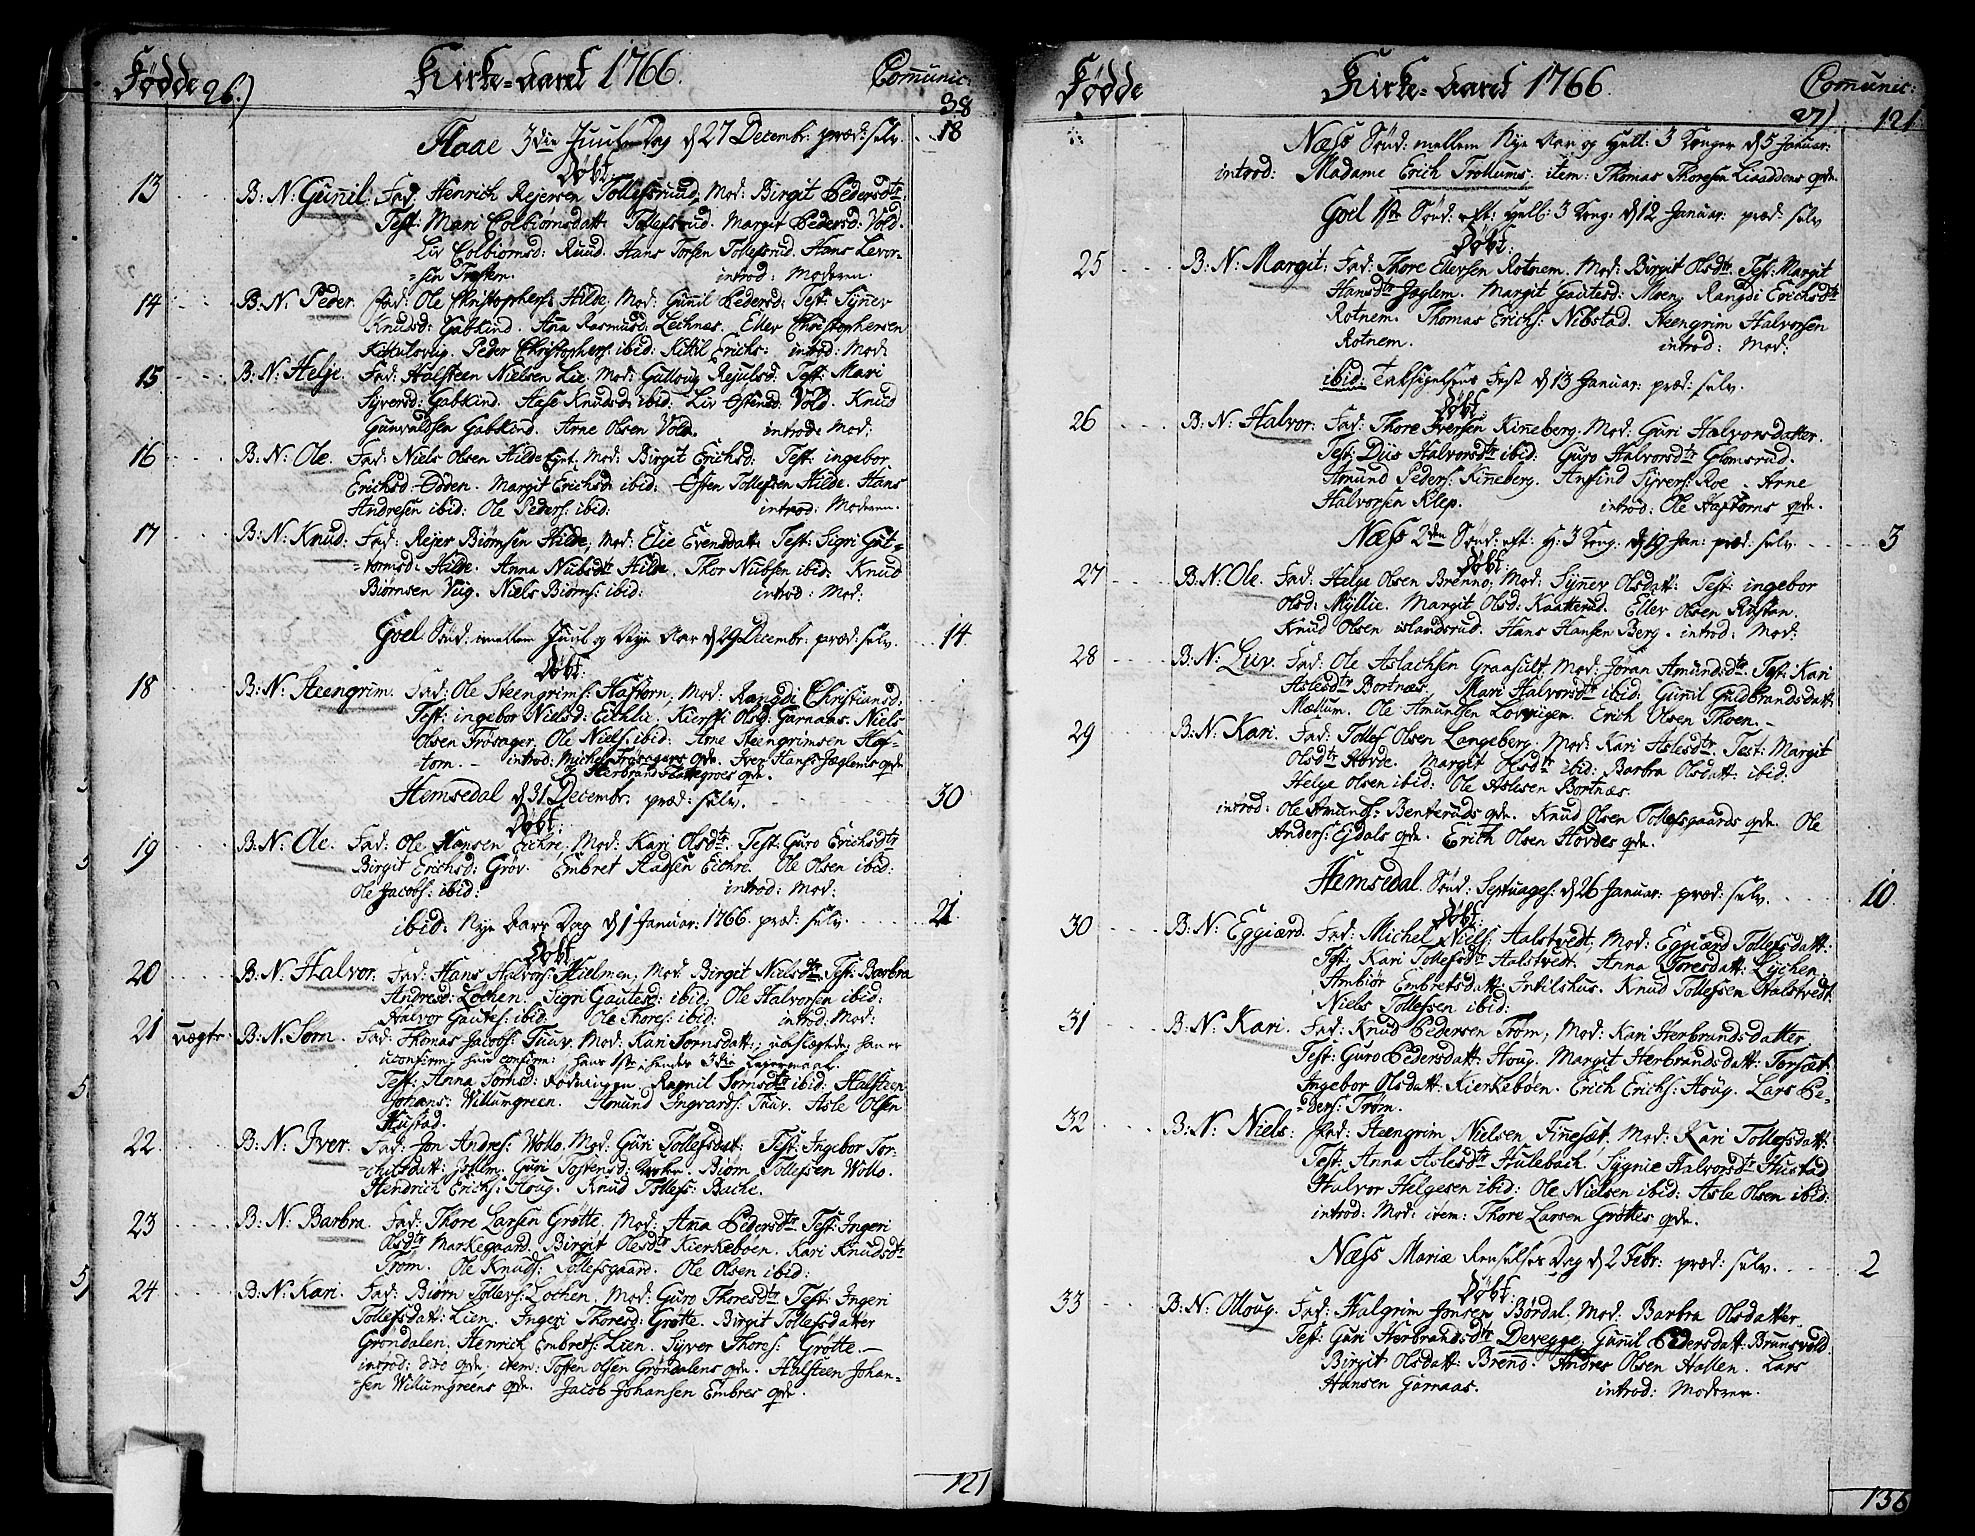 Fødde 26) Kirke-Aaret 1766. Comunic:
38
Flaae 3die Juule Dag d 27 Decembr: præd: selv. 18
Døbt.
13 B. N: Gunil: Fad: Henrich Rejersen Tollefsrud, Mod: Birgit Pedersdtr:
Test: Mari Colbiørnsdatt: Tollefsrud. Margit Pedersd: Vold.
Liv Colbiørnsd: Ruud. Hans Torsen Tollefsrud. Hans Levor-
=sen Trøstem. introd: Moderen.
14 B: N. Peder Fad: Ole Christophers: Hilde, Mod: Gunil Pedersd: Test: Syner
Knudsd: Gabkind. Ana Rasmusd: Leiknes. Eller Christophersen
Kittilsrug. Peder Christophers: ibid: Kittil Erichs: introd: Mod:
15 B: N: Helje. Fad: Halsteen Nielsen Lie. Mod: Gulloug Rejulsd: Test: Mari
Syversd: Gabkind. Aase Knudsd: ibid: Liv Østensd: Vold. Knud
Gunvaldsen Gabkind. Arne Olsen Vold. introd: Mod:
16 B: N: Ole Fad: Niels Olsen Hilde Ejet. Mod: Birgit Erichsd: Test: ingebor
Erichsd Ødden. Margit Erichsd ibid: Østen Tollefsen Hilde. Hans
Andresen ibid: Ole Peders: ibid: introd: Moderen.
17 B: N: Knud: Fad: Rejer Biørnsen Hilde, Mod: Elie Evensdatt: Test: Sigri Gut=
=tormsd: Hilde. Anna Nubsdtr Hilde. Thor Nubsen ibid: Knud
Biørnsen Veig. Niels Biørns: ibid: introd: Mod:
Goel Sønd: mellem Juul og Nye Aar d 29 Decembr: præd: selv. 14
Døbt.
18 B: N: Steengrim. Fad: Ole Steengrims: Haftorn, Mod: Rangdi Christiansd:
Test: ingebor Nielsd: Eichlie. Kiersti Olsd: Garnaas. Niels
Olsen Trøsager. Ole Niels: ibid: Arne Steengrimsen Haf-
=torn. – introd: Michel Trøsagers qde. Iver Hans: Jøglems qde
og Herbrand Slettegroes qde.
Hemsedal d 31 Decembr: præd: selv. 30
Døbt:
19 B: N: Ole. Fad: Ole Hansen Eickre, Mod: Kari Olsdtr. Test: Guro Erichsdtr
Birgit Erichsd: Grøv. Embret Aagsen Eichre. Ole Olsen ibid:
Ole Jacobs: ibid: introd: Mod:
ibid: Nye Aars Dag d 1 Januar: 1766. præd: selv. 21
Døbt
20 B: N. Halvor. Fad: Hans Halvors: Kielmen, Mod: Birgit Nielsdtr Test: Barbra
Andresd: Løchen. Sigri Gautesd: ibid: Ole Halvorsen ibid:
Halvor Gautes: ibid: Ole Thores: ibid: introd: Mod:
21 uægte B: N. Sørn. Fad: Thomas Jacobs: Tuuv. Mod: Kari Sørnsdatt: ubeslægtede; han er
uconfirm: hun confirm: hans 1ste, hendes 3die Leiermaal.
Test: Anna Sørnsd: Rødningen. Ragnil Sørnsdtr ibid: Halsteen
Johans: Willumgreen. Amund Ingvards: Tuuv. Asle Olsen
Hustad.
22 B: N. Iver. Fad: Jon Andres: Wøllo. Mod: Guri Tollefsdatt. Test: Ingebor Tor-
=chilsdatt: Guri Tostensd: Biørn Tollefsen Wøllo.
Hendrich Erichs: Houg. Knud Tollefs: Bache.
23 B: N: Barbra. Fad: Thore Larsen Grøtte, Mod: Anna Pedersdtr Test: Ingeri
Olsdtr Markegaard. Birgit Olesdtr Kierkebøen. Kari Knudsdtr
Trøm. Ole Knuds: Tollefsgaard. Ole Olsen ibid:
24 B: N: Kari. Fad: Biørn Tollefs: Løchen. Mod: Guro Thoresdtr Test: Ingeri
Tollefsdatt: Lien. Ingeri Thoresd: Grøtte. Birgit Tollefsdatter
Grøndalen. Henrich Embrets: Lien. Syver Thores: Grøtte.—
introd: dito qde, item: Tosten olsen Grøndalens qde. Halsteen Johan-
=sen Willumgreens qde. Jacob Johansen Embres qde.
121
Fødde Kirke-Aaret 1766. Comunic:
27) 121
Næss Sønd: mellem Nye Aar og Hell: 3 Konger d 5 Januar:
introd: Madame Erich Trollums. item: Thomas Thoresen Liaaddens qde.
Goel 1ste Sønd: eft: Hell: 3 Kong: d 12 Januar: præd: selv
Døbt:
25 B: N. Margit: Fad: Thore Ellersen Rotnem. Mod: Birgit Olsdtr Test: Margit
Hansdtr Jøglem. Margit Gautesd: Moen, Rangdi Erichsdtr
Rotnem. Thomas Erichs: Nibstad. Steengrim Halvorsen
Rotnem. introd: Mod:
ibid: Taksigelsens Fest d 13 Januar: præd: selv.
Døbt.
26 B: N: Halvor. Fad: Thore Iversen Kineberg. Mod: Guri Halvorsdatter.
Test: Diis Halvorsdtr ibid: Guro Halvorsdtr Glomsrud.
Amund Peders: Kineberg. Anfind Syvers: Roe. Arne
Halvorsen Klep. introd: Ole Haftorns qde.
Næss 2den Sønd: eft: H: 3 Kong: d 19 Jan: præd: selv. 3
Døbt:
27 B: N: Ole. Fad: Helge Olsen Brenno, Mod: Syner Olsdatt: Test: ingebor
Olsd: Myllie. Margit Olsd: Kaatterud. Eller Olsen Rustan.
Knud Olsen islandsrud. Hans Hansen Berg. introd: Mod:
28 B: N: Liiv. Fad: Ole Aslachsen Graasult Mod: Jøran Amundsdtr Test: Kari
Aslesdtr Bortnæs. Mari Halvorsdtr ibid: Gunil Guldbrandsdatt:
Mællum. Ole Amundsen Lovvigen. Erich Olsen Thoen. -
29 B: N: Kari. Fad: Tollef Olsen Langeberg, Mod: Kari Aslesdtr. Test: Margit
Olsdtr Hovde. Margit Olsdtr ibid: Barbra Olsdatt: ibid:
Helge Olsen ibid: Ole Aslesen Bortnæs.
introd: Ole Amunds: Benteruds qde. Knud Olsen Tollefsgaards qde. Ole
Anders: Ejdals qde. Erich Olsen Hovdes qde.
Hemsedal. Sønd: Septuages: d 26 Januar: præd: selv. 10.
Døbt:
30 B: N: Eggiærd. Fad: Michel Niels: Aalstvedt, Mod: Eggiærd Tollefsdatt:
Tst: Kari Tollefsdtr Aalstvedt. Anna Toresdatt: Lychen.
Ambiør Embretsdatt: Intilshus. Knud Tollefsen Aalstvedt
Niels Tollefsen ibid:
31 B: N: Kari. Fad: Knud Pedersen Trøm, Mod: Kari Herbrandsdatter.
Test: Guro Pedersdatt: Houg. Margit Herbrandsdatt: Torsæt.
Ingebor Olsdatt: Kierkebøen. Erich Erichs: Houg. Lars Pe-
=ders: Trøm.
32 B: N: Niels: Fad: Steengrim Nielsen Finesæt, Mod: Kari Tollefsdatt:
Test: Anna Aslesdtr Hulebach, Sygnie Halvorsdtr Hustad
Halvor Helgesen ibid: Ole Nielsen ibid: Asle Olsen ibid:
introd: Mod: item: Thore Larsen Grøttes qde.
Næss Mariæ Renselses Dag d 2 Febr: præd: selv. 2
Døbt:
33 B: N: Olloug. Fad: Halgrim Jonsen Børdal. Mod: Barbra Olsdatter.
Test: Guri Herbrandsdtr Devegge. Gunil Pedersdatt: Brunsvold
Birgit Olsdatt: Breno. Andres Olsen Hallen. Lars
Hansen Garnaas. introd: Moderen.
136